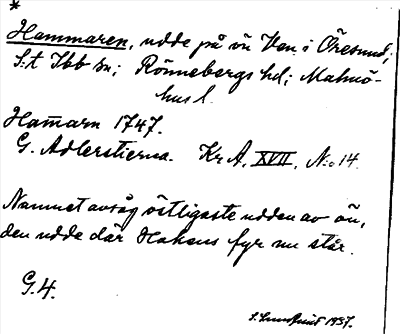 *
Hammaren, udde på ön Ven i Öresund;
S:t Ibb sn; Rönnebergs hd; Malmö-
hus l.
Ham̄arn 1747.
G. Adlerstierna. Kr A, XVII, N:o 14.
Namnet avsåg östligaste udden av ön,
den udde där Hakens fyr nu står.
G.4.
1937.